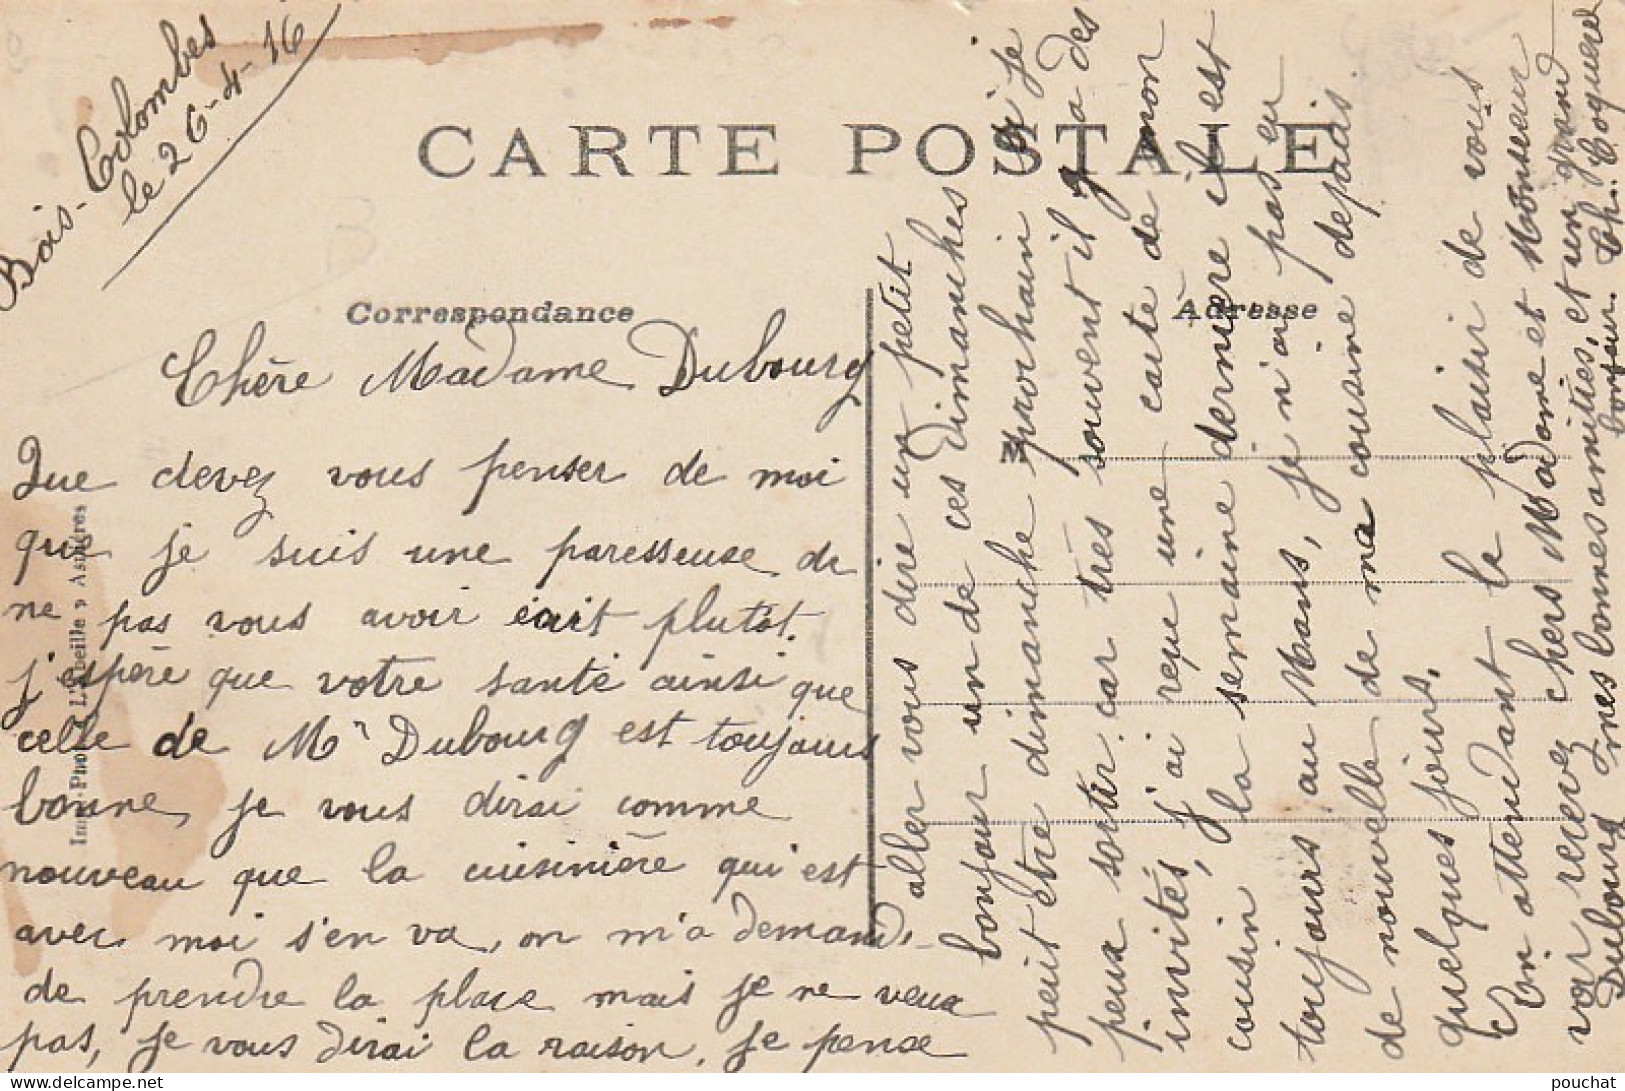 Bois-Colombes
le 26-4-16
CARTE POSTALE
Correspondance
Adresse
M
Imp.-Phot. « L'Abeille » Asnières
Chère Madame Dubourg
Que devez vous penser de moi
que je suis une paresseuse de
ne pas vous avoir écrit plutôt.
j'espère que votre santé ainsi que
celle de Mr Dubourg est toujours
bonne, je vous dirai comme
nouveau que la cuisinière qui est
avec moi s'en va, on m'a demand.
de prendre la place mais je ne veux
pas, je vous dirai la raison. Je pense
aller vous dire un petit
bonjour un de ces dimanches
peut être dimanche prochain si je
peux sortir car très souvent il y a des
invités, j'ai reçu une carte de mon
cousin la semaine dernière il est
toujours au Mans, je n'ai pas eu
de nouvelle de ma cousine depuis
quelques jours.
En attendant le plaisir de vous
voir recevez chers Madame et Monsieur
Dubourg mes bonnes amitiés, et un grand
bonjour. Ch. Coquerel
© pouchat